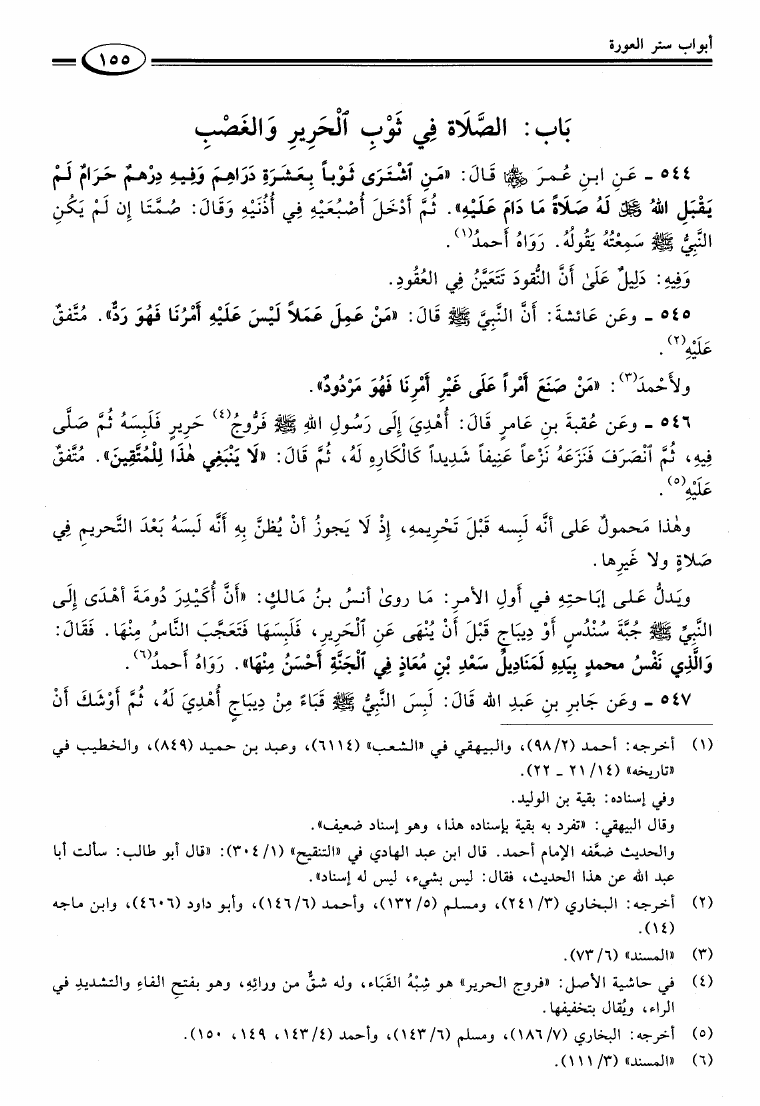 أبواب ستر العورة
١٥٥
بَاب: الصَّلَاة فِي ثَوْبِ ٱلْحَرِيرِ وَالغَصْبِ
٥٤٤ ـ عَنِ ابنِ عُمرَ ﵄ قَالَ: «مَنِ ٱشْتَرَى ثَوْباً بِعَشَرَةِ دَرَاهِمَ وَفِيهِ دِرْهمٌ حَرَامٌ لَمْ
يَقْبَلِ اللهُ ﷿ لَهُ صَلَاةً مَا دَامَ عَلَيْهِ». ثُمَّ أَدْخَلَ أُصْبُعَيْهِ فِي أُذُنَيْهِ وَقَالَ: صُمَّتَا إِن لَمْ يَكُنِ
النَّبِيُّ ﷺ سَمِعْتُهُ يَقُولُهُ. رَوَاهُ أَحمدُ(١).
وَفِيهِ: دَلِيلٌ عَلَىٰ أَنَّ النُّقودَ تَتَعَيَّنُ فِي العُقُودِ.
٥٤٥ ـ وعَن عَائشةَ: أَنَّ النَّبِيَّ ﷺ قَالَ: «مَنْ عَمِلَ عَمَلاً لَيْسَ عَلَيْهِ أَمْرُنَا فَهُوَ رَدٌّ». مُتَّفقٌ
عَلَيْهِ(٢).
ولأَحْمدَ(٣): «مَنْ صَنَعَ أَمْراً عَلَى غَيْرِ أَمْرِنَا فَهُوَ مَرْدُودٌ».
٥٤٦ ـ وعَن عُقبةَ بنِ عامرٍ قَالَ: أُهْدِيَ إِلَى رَسُولِ اللهِ ﷺ فَرُّوجُ(٤) حَرِيرٍ فَلَبِسَهُ ثُمَّ صَلَّى
فِيهِ، ثُمَّ ٱنْصَرَفَ فَنَزَعَهُ نَزْعاً عَنِيفاً شَدِيداً كَالْكَارِهِ لَهُ، ثُمَّ قَالَ: «لَا يَنْبَغِي هَٰذَا لِلْمُتَّقِينَ». مُتَّفقٌ
عَلَيْهِ(٥).
وهَٰذا مَحمولٌ عَلى أنَّه لَبِسه قَبْلَ تَحْرِيمِهِ، إِذْ لَا يَجوزُ أنْ يُظنَّ بِهِ أَنَّه لَبسَهُ بَعْدَ التَّحريمِ فِي
صَلاةٍ ولا غَيرِها.
ويَدلُّ عَلى إبَاحتِهِ في أَولِ الأمرِ: مَا روىٰ أنسُ بنُ مَالكٍ: «أنَّ أُكَيْدِرَ دُومَةَ أهْدَى إِلَى
النَّبِيِّ ﷺ جُبَّةَ سُنْدُسٍ أوْ دِيبَاجٍ قَبْلَ أَنْ يُنْهَى عَنِ ٱلْحَرِيرِ، فَلَبِسَهَا فَتَعَجَّبَ النَّاسُ مِنْهَا. فَقَالَ:
وَالَّذِي نَفْسُ محمدٍ بِيَدِهِ لَمَنَادِيلُ سَعْدِ بْنِ مُعَاذٍ فِي الْجَنَّةِ أَحْسَنُ مِنْهَا». رَوَاهُ أَحمدُ(٦).
٥٤٧ ـ وعَن جَابرِ بنِ عَبدِ الله قَالَ: لَبِسَ النَّبِيُّ ﷺ قَبَاءً مِنْ دِيبَاجٍ أُهْدِيَ لَهُ، ثُمَّ أَوْشَكَ أَنْ
(١) أخرجه: أحمد (٩٨/٢)، والبيهقي في «الشعب» (٦١١٤)، وعبد بن حميد (٨٤٩)، والخطيب في
«تاريخه» (٢١/١٤ ـ ٢٢).
وفي إسناده: بقية بن الوليد.
وقال البيهقي: «تفرد به بقية بإسناده هذا، وهو إسناد ضعيف».
والحديث ضعَّفه الإمام أحمد. قال ابن عبد الهادي في «التنقيح» (٣٠٤/١): «قال أبو طالب: سألت أبا
عبد الله عن هذا الحديث، فقال: ليس بشيء، ليس له إسناد».
(٢) أخرجه: البخاري (٢٤١/٣)، ومسلم (١٣٢/٥)، وأحمد (١٤٦/٦)، وأبو داود (٤٦٠٦)، وابن ماجه
(١٤).
(٣) «المسند» (٧٣/٦).
(٤) في حاشية الأصل: «فروج الحرير» هو شِبْهُ القَبَاء، وله شقٌّ من ورائِهِ، وهو بفتحِ الفاءِ والتشديدِ في
الراء، ويُقال بتخفيفها.
(٥) أخرجه: البخاري (١٨٦/٧)، ومسلم (١٤٣/٦)، وأحمد (١٤٣/٤، ١٤٩، ١٥٠).
(٦) «المسند» (١١١/٣).